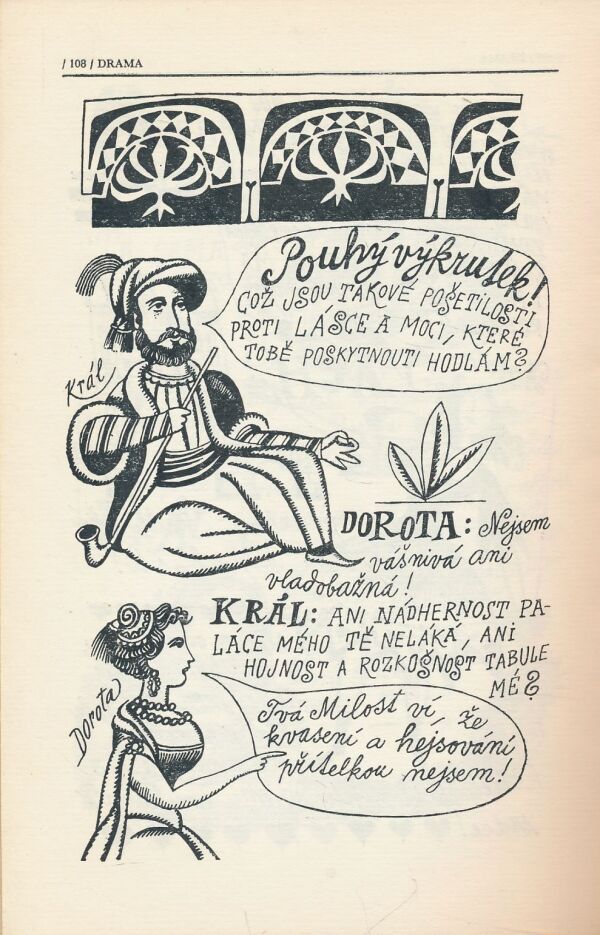 / 108 / DRAMA
Pouhý výkrutek!
COŽ JSOU TAKOVÉ POŠETILOSTI
PROTI LÁSCE A MOCI, KTERÉ
TOBĚ POSKYTNOUTI HODLÁM?
Král
DOROTA: Nejsem
vášnivá ani
vladobažná!
KRÁL: ANI NÁDHERNOST PA-
LÁCE MÉHO TĚ NELÁKÁ, ANI
HOJNOST A ROZKOŠNOST TABULE
MÉ?
Dorota
Tvá Milost ví, že
kvasení a hejsování
přítelkou nejsem!